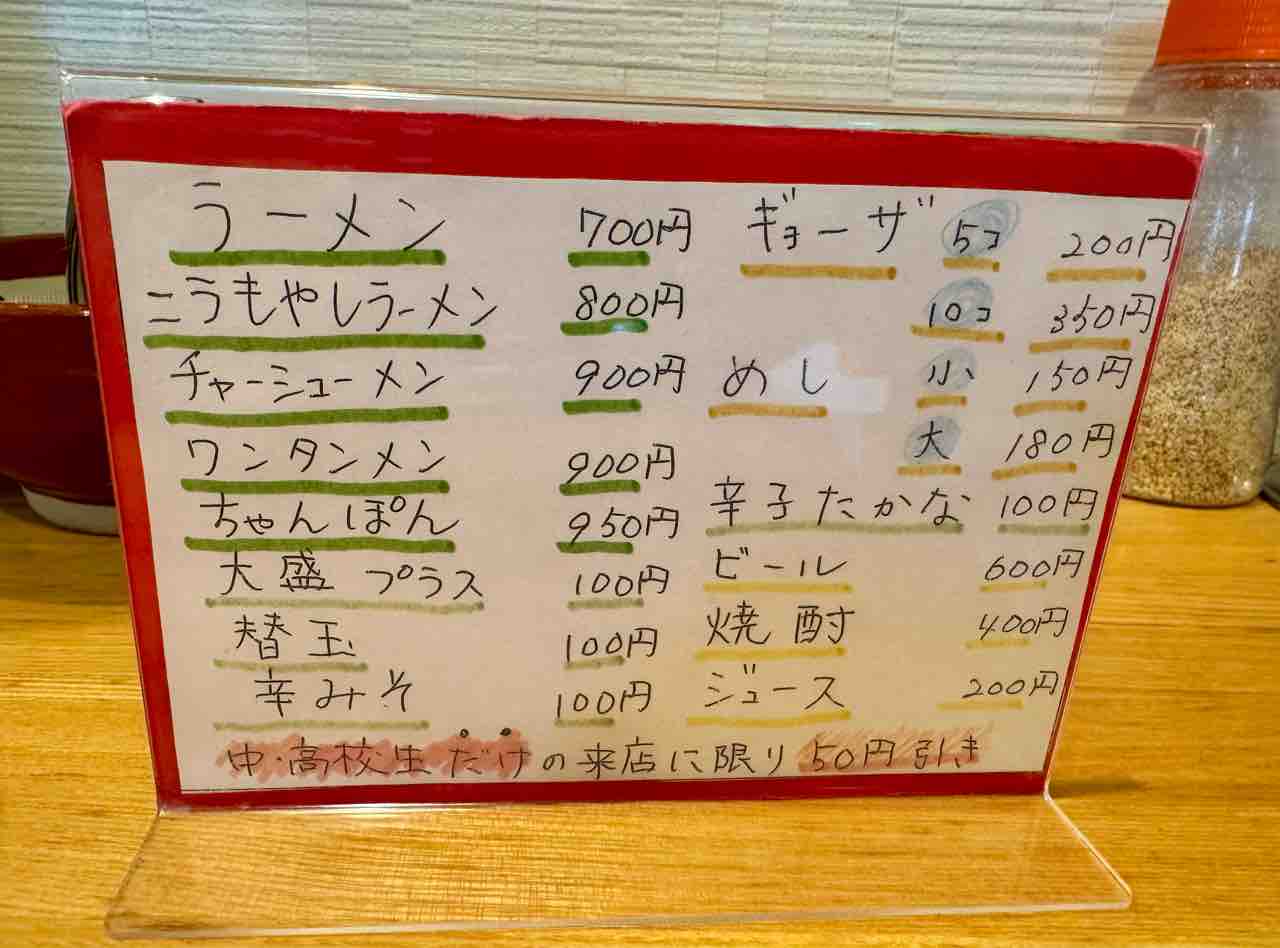 ラーメン 700円
ニラもやしラーメン 800円
チャーシューメン 900円
ワンタンメン 900円
ちゃんぽん 950円
大盛プラス 100円
替玉 100円
辛みそ 100円
ギョーザ 5コ 200円
10コ 350円
めし 小 150円
大 180円
辛子たかな 100円
ビール 600円
焼酎 400円
ジュース 200円
中・高校生だけの来店に限り50円引き